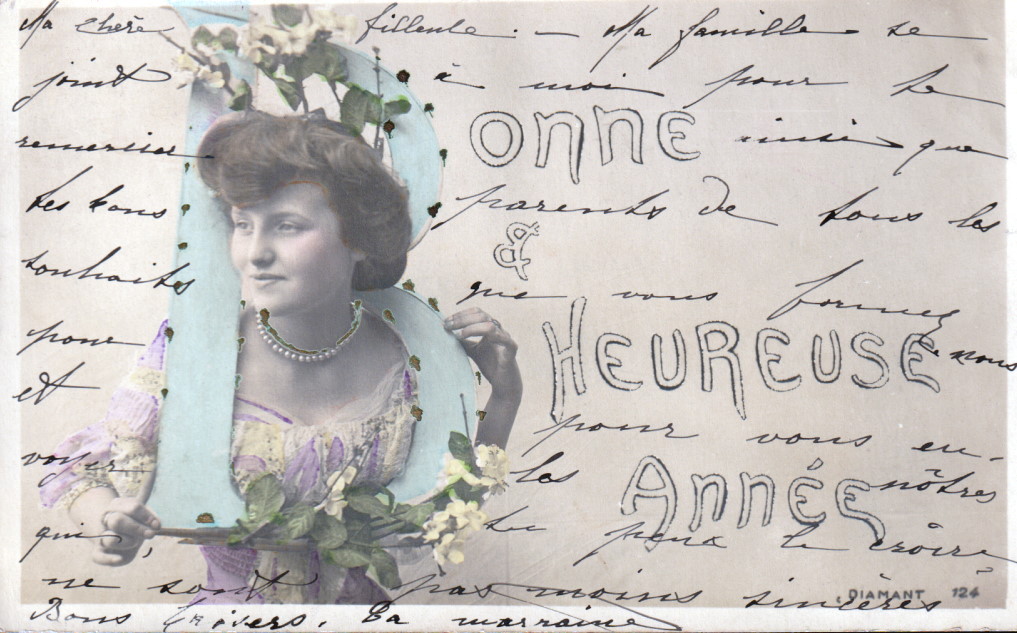 Ma chère filleule. — Ma famille se
joint à moi pour te
ONNE
remercier ainsi que
tes bons parents de tous les
&
souhaits que vous formez
HEUREUSE
pour nous
et pour vous en-
ANNÉE
voyer les nôtres
qui, tu peux le croire
ne sont pas moins sincères
DIAMANT 124
Bons baisers. Ta marraine